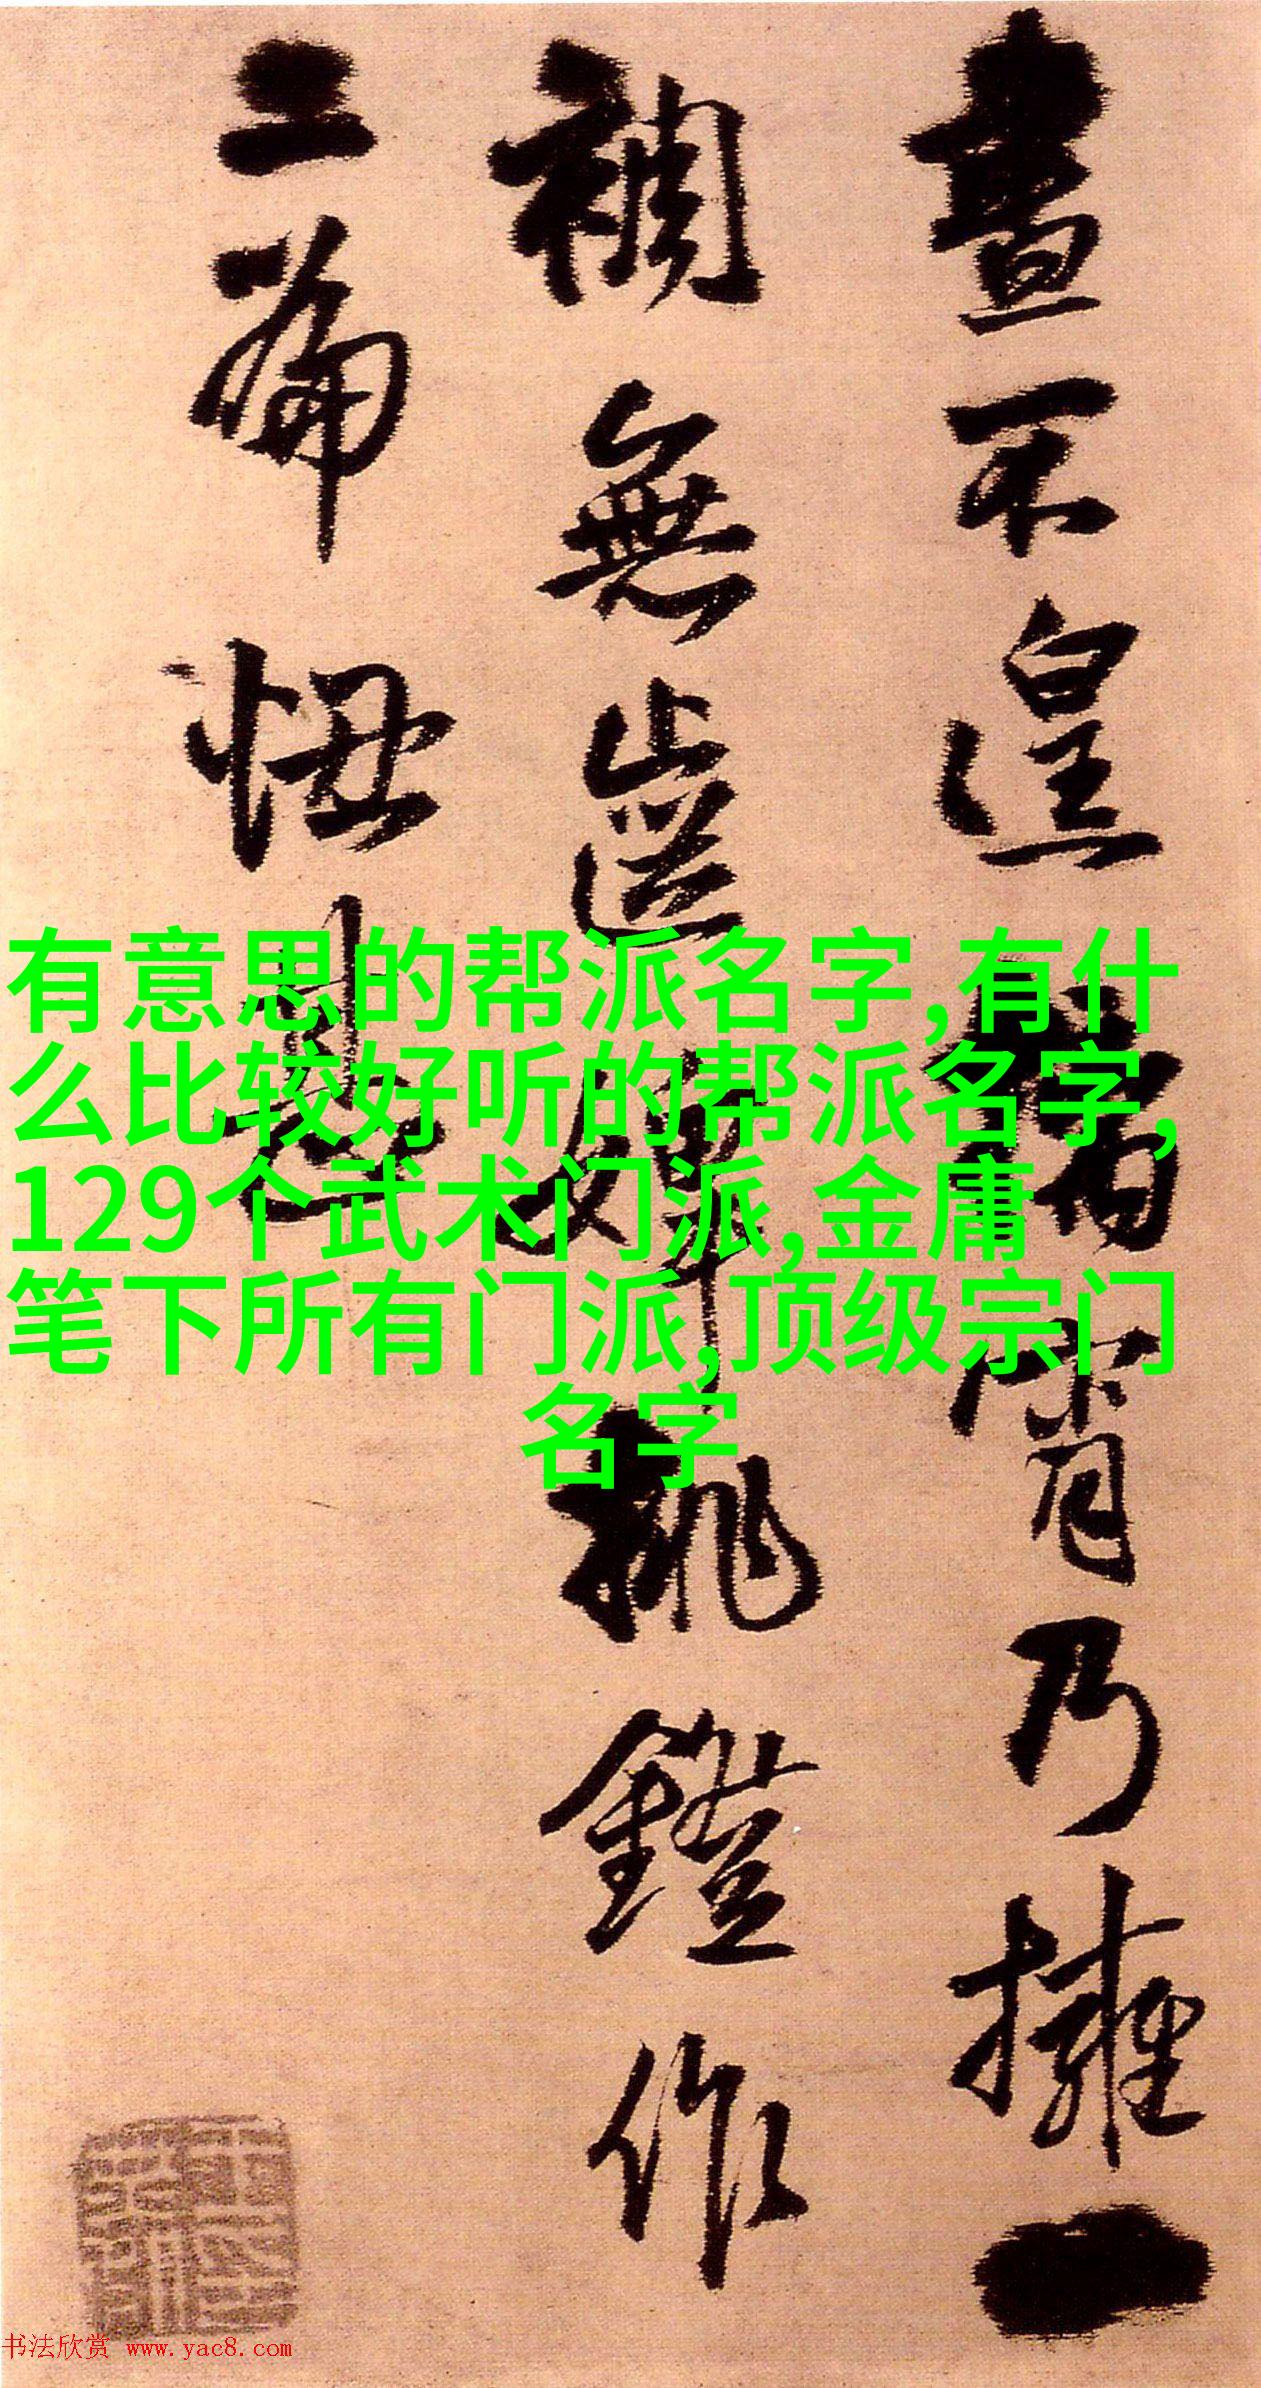 晝不遑宵乃擁一
裯無婢挑鐙作
篇
有意思的帮派名字,有什
么比较好听的帮派名字,
129个武术门派,金庸
笔下所有门派,顶级宗门
名字
书法欣赏 www.yac8.com